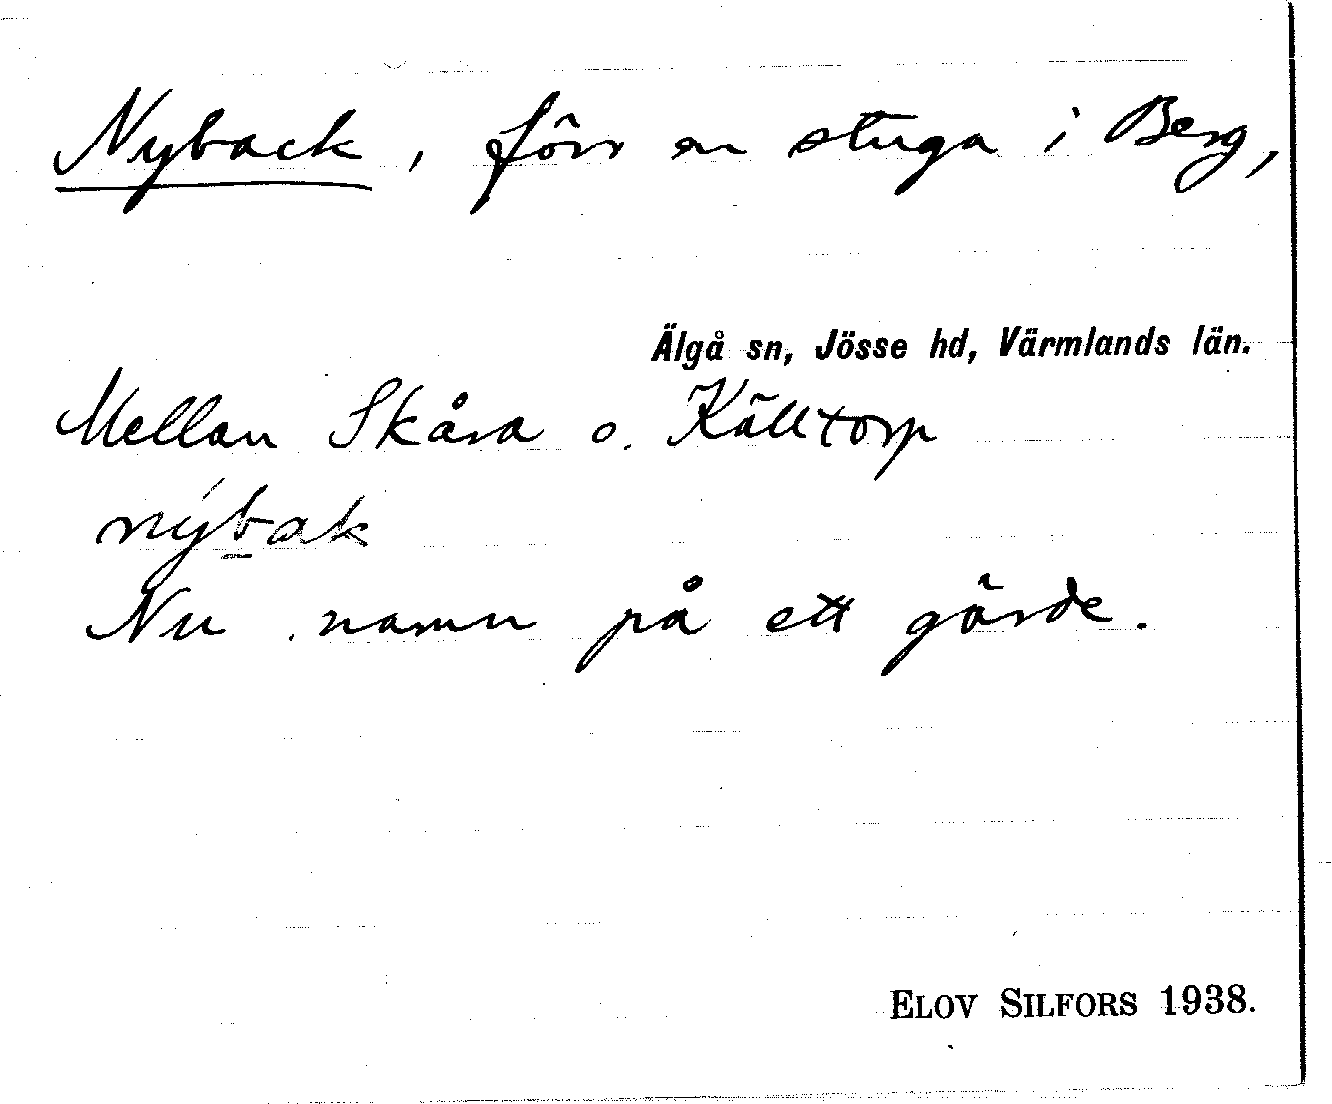 Nyback, förr en stuga i Berg,
Älgå sn, Jösse hd, Värmlands län.
Mellan Skåra o. Källtorp
nýbak
Nu namn på ett gärde.
ELOV SILFORS 1938.